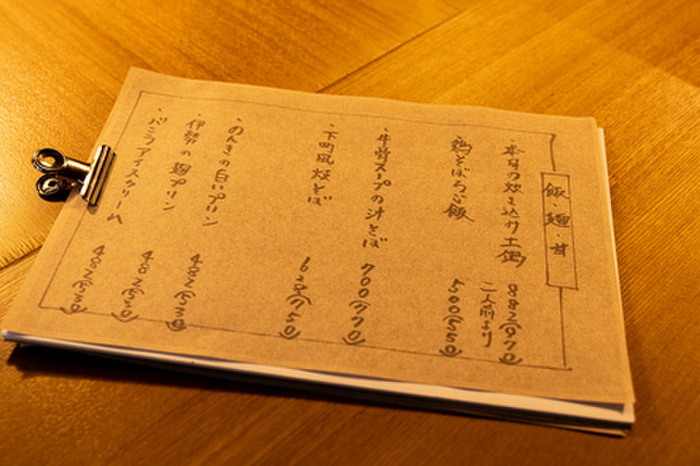 飯・麺・甘
・本日の炊き込み土鍋 882(970)
二人前より
・鶏そぼろご飯 500(550)
・牛骨スープの汁そば 700(770)
・下町風焼そば 682(750)
・のんきの白いプリン 482(530)
・伊勢の麹プリン 482(530)
・バニラアイスクリーム 482(530)